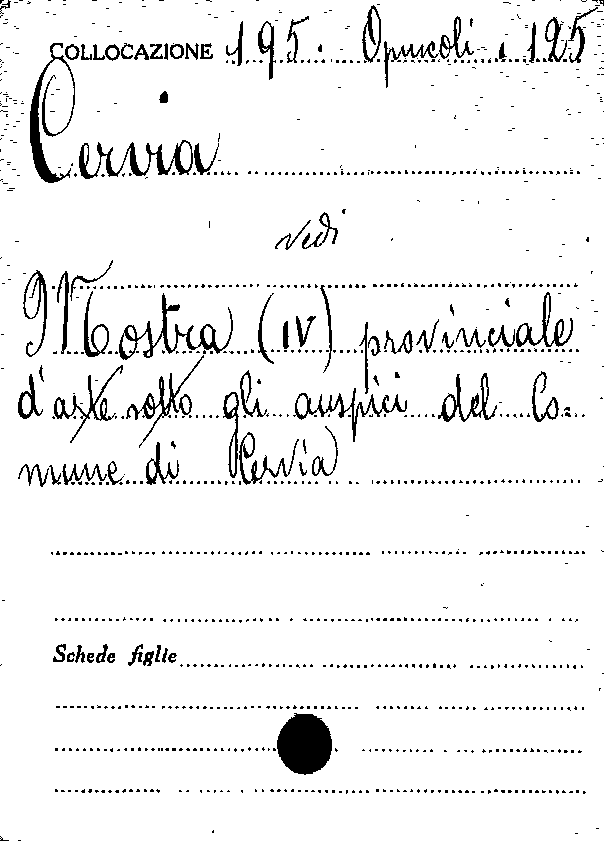 COLLOCAZIONE 195. Opuscoli. 125
Cervia
vedi
Mostra (IV) provinciale
d'arte sotto gli auspici del Co=
mune di Cervia
Schede figlie